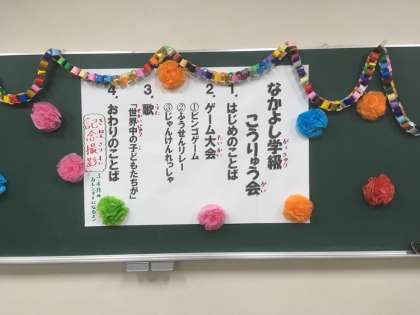 なかよし学級
こうりゅう会
1. はじめのことば
2. ゲーム大会
①ビンゴゲーム
②ふうせんリレー
③じゃんけんれっしゃ
3. 歌
「世界中の子どもたちが」
4. おわりのことば
記念撮影